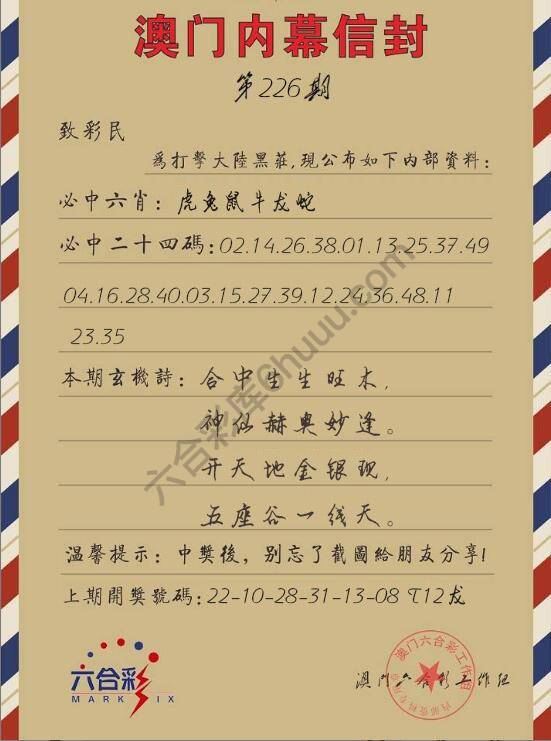 澳门内幕信封
第226期
致彩民
為打擊大陸黑莊,現公布如下内部資料:
必中六肖: 虎兔鼠牛龙蛇
必中二十四碼:02.14.26.38.01.13.25.37.49
04.16.28.40.03.15.27.39.12.24.36.48.11
23.35
本期玄機詩: 合中生生旺木,
神仙赫奥妙逢。
开天地金银现,
五座谷一线天。
温馨提示: 中獎後, 别忘了截圖給朋友分享!
上期開獎號碼:22-10-28-31-13-08 T12龙
六合彩
MARK SIX
澳门六合彩工作组
澳门六合彩工作组
六合彩库6huuu.com